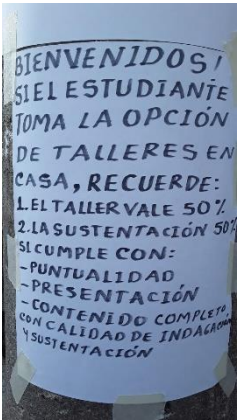 BIENVENIDOS!
SI EL ESTUDIANTE
TOMA LA OPCIÓN
DE TALLERES EN
CASA, RECUERDE:
1. EL TALLER VALE 50%
2. LA SUSTENTACIÓN 50%
SI CUMPLE CON:
-PUNTUALIDAD
-PRESENTACIÓN
-CONTENIDO COMPLETO
CON CALIDAD DE INDAGACIÓN
Y SUSTENTACIÓN